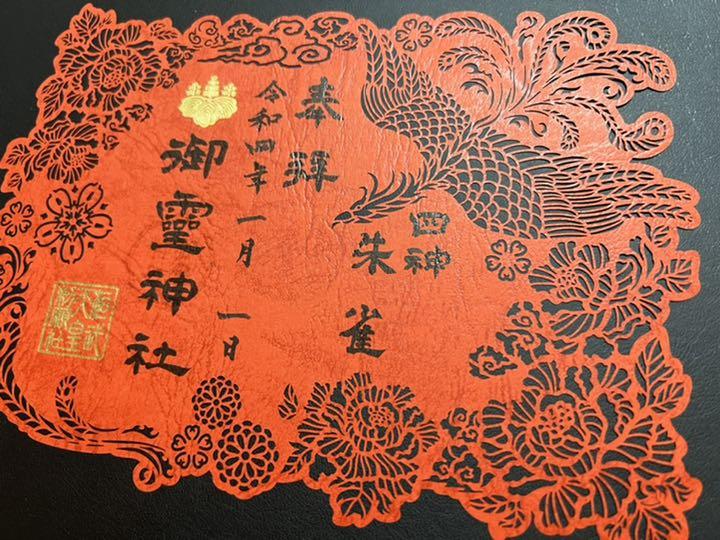 四神
朱雀
奉拝
令和四年一月一日
御靈神社